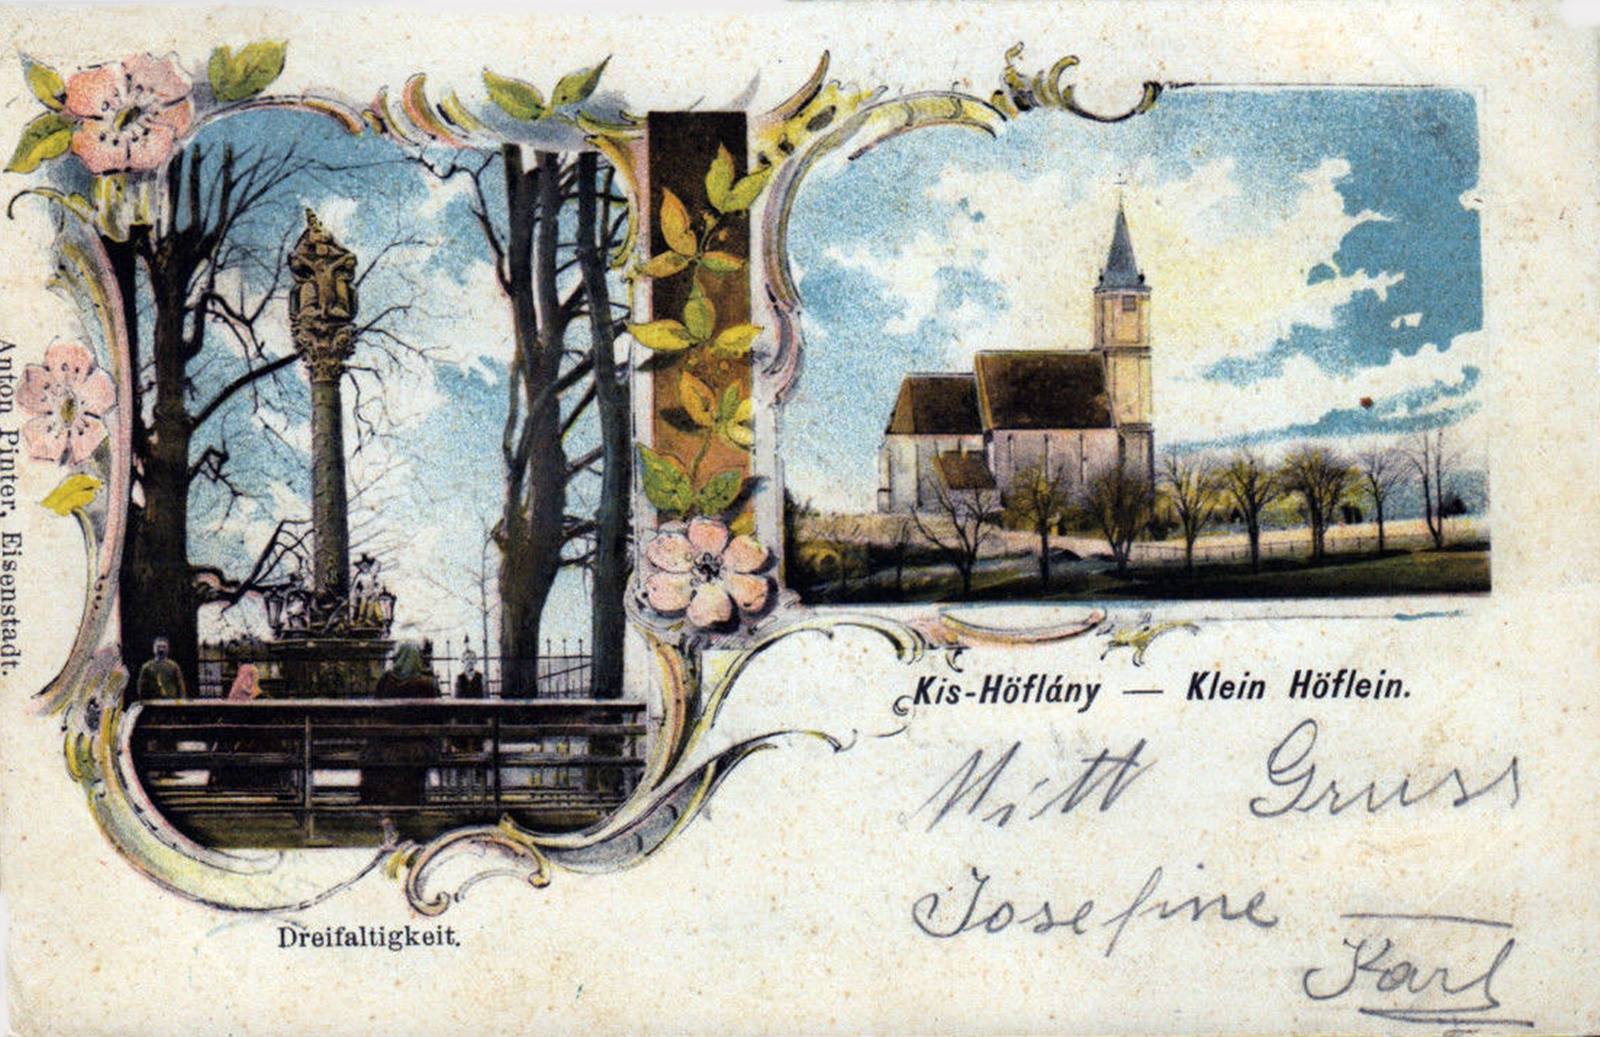 Anton Pinter, Eisenstadt.
Kis-Höflány — Klein Höflein.
Mitt Gruss
Josefine
Karl
Dreifaltigkeit.